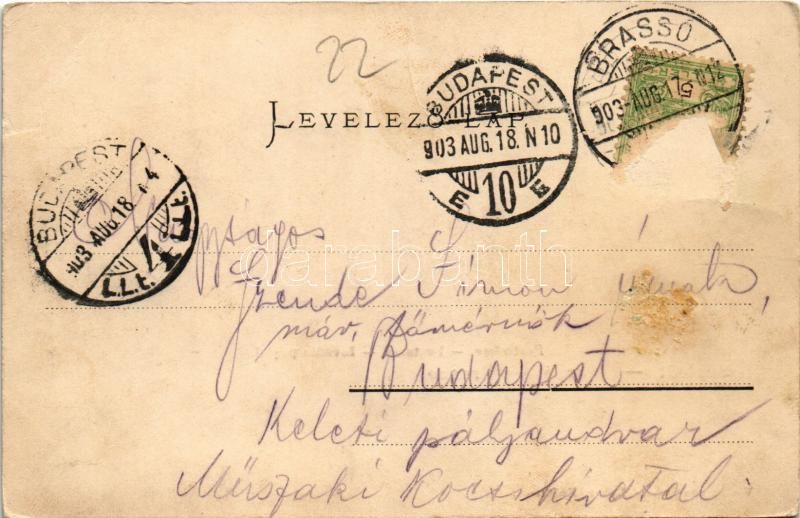 22
LEVELEZŐ-LAP
BUDAPEST
903 AUG. 18. N 10
E 10 E
BRASSÓ
903 AUG. 17. N 12
5
BUDAPEST
903 AUG. 18
4
I.I.t.
darabanth
Szende Simon úrnak,
máv. főmérnök
Budapest
Keleti pályaudvar
Műszaki Kocsihivatal.